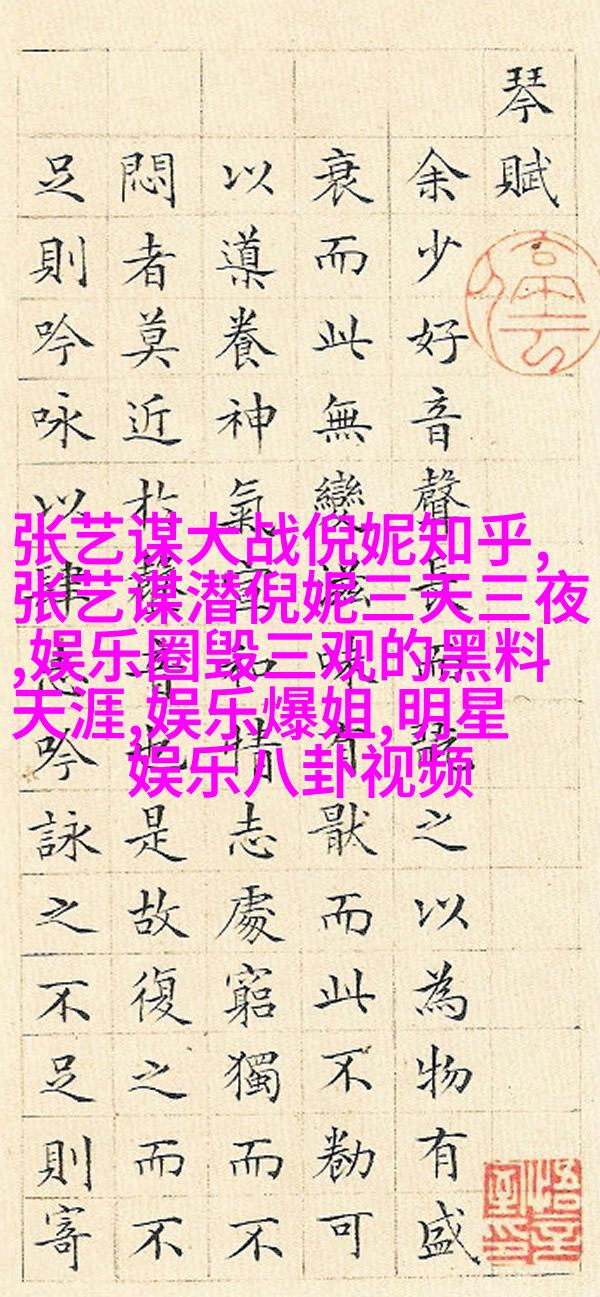 琴賦
余少好音聲長而翫之以為物有盛
衰而此無變滋味有猒而此不勌可
以導養神氣宣和情志處窮獨而不
悶者莫近於聲音也是故復之而不
足則吟咏以肆志吟詠之不足則寄
张艺谋大战倪妮知乎,
张艺谋潜倪妮三天三夜
,娱乐圈毁三观的黑料
天涯,娱乐爆姐,明星
娱乐八卦视频